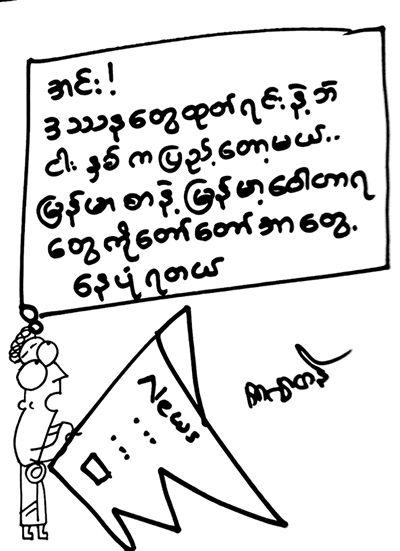 အင်း!
ဒဿနတွေထုတ်ရင်းနဲ့ဘဲ
ငါး နှစ် ကပြည့်တော့မယ်..
မြန်မာစာနဲ့မြန်မာ့ဝေါဟာရ
တွေကိုတော်တော်အာတွေ့
နေပုံရတယ်
News